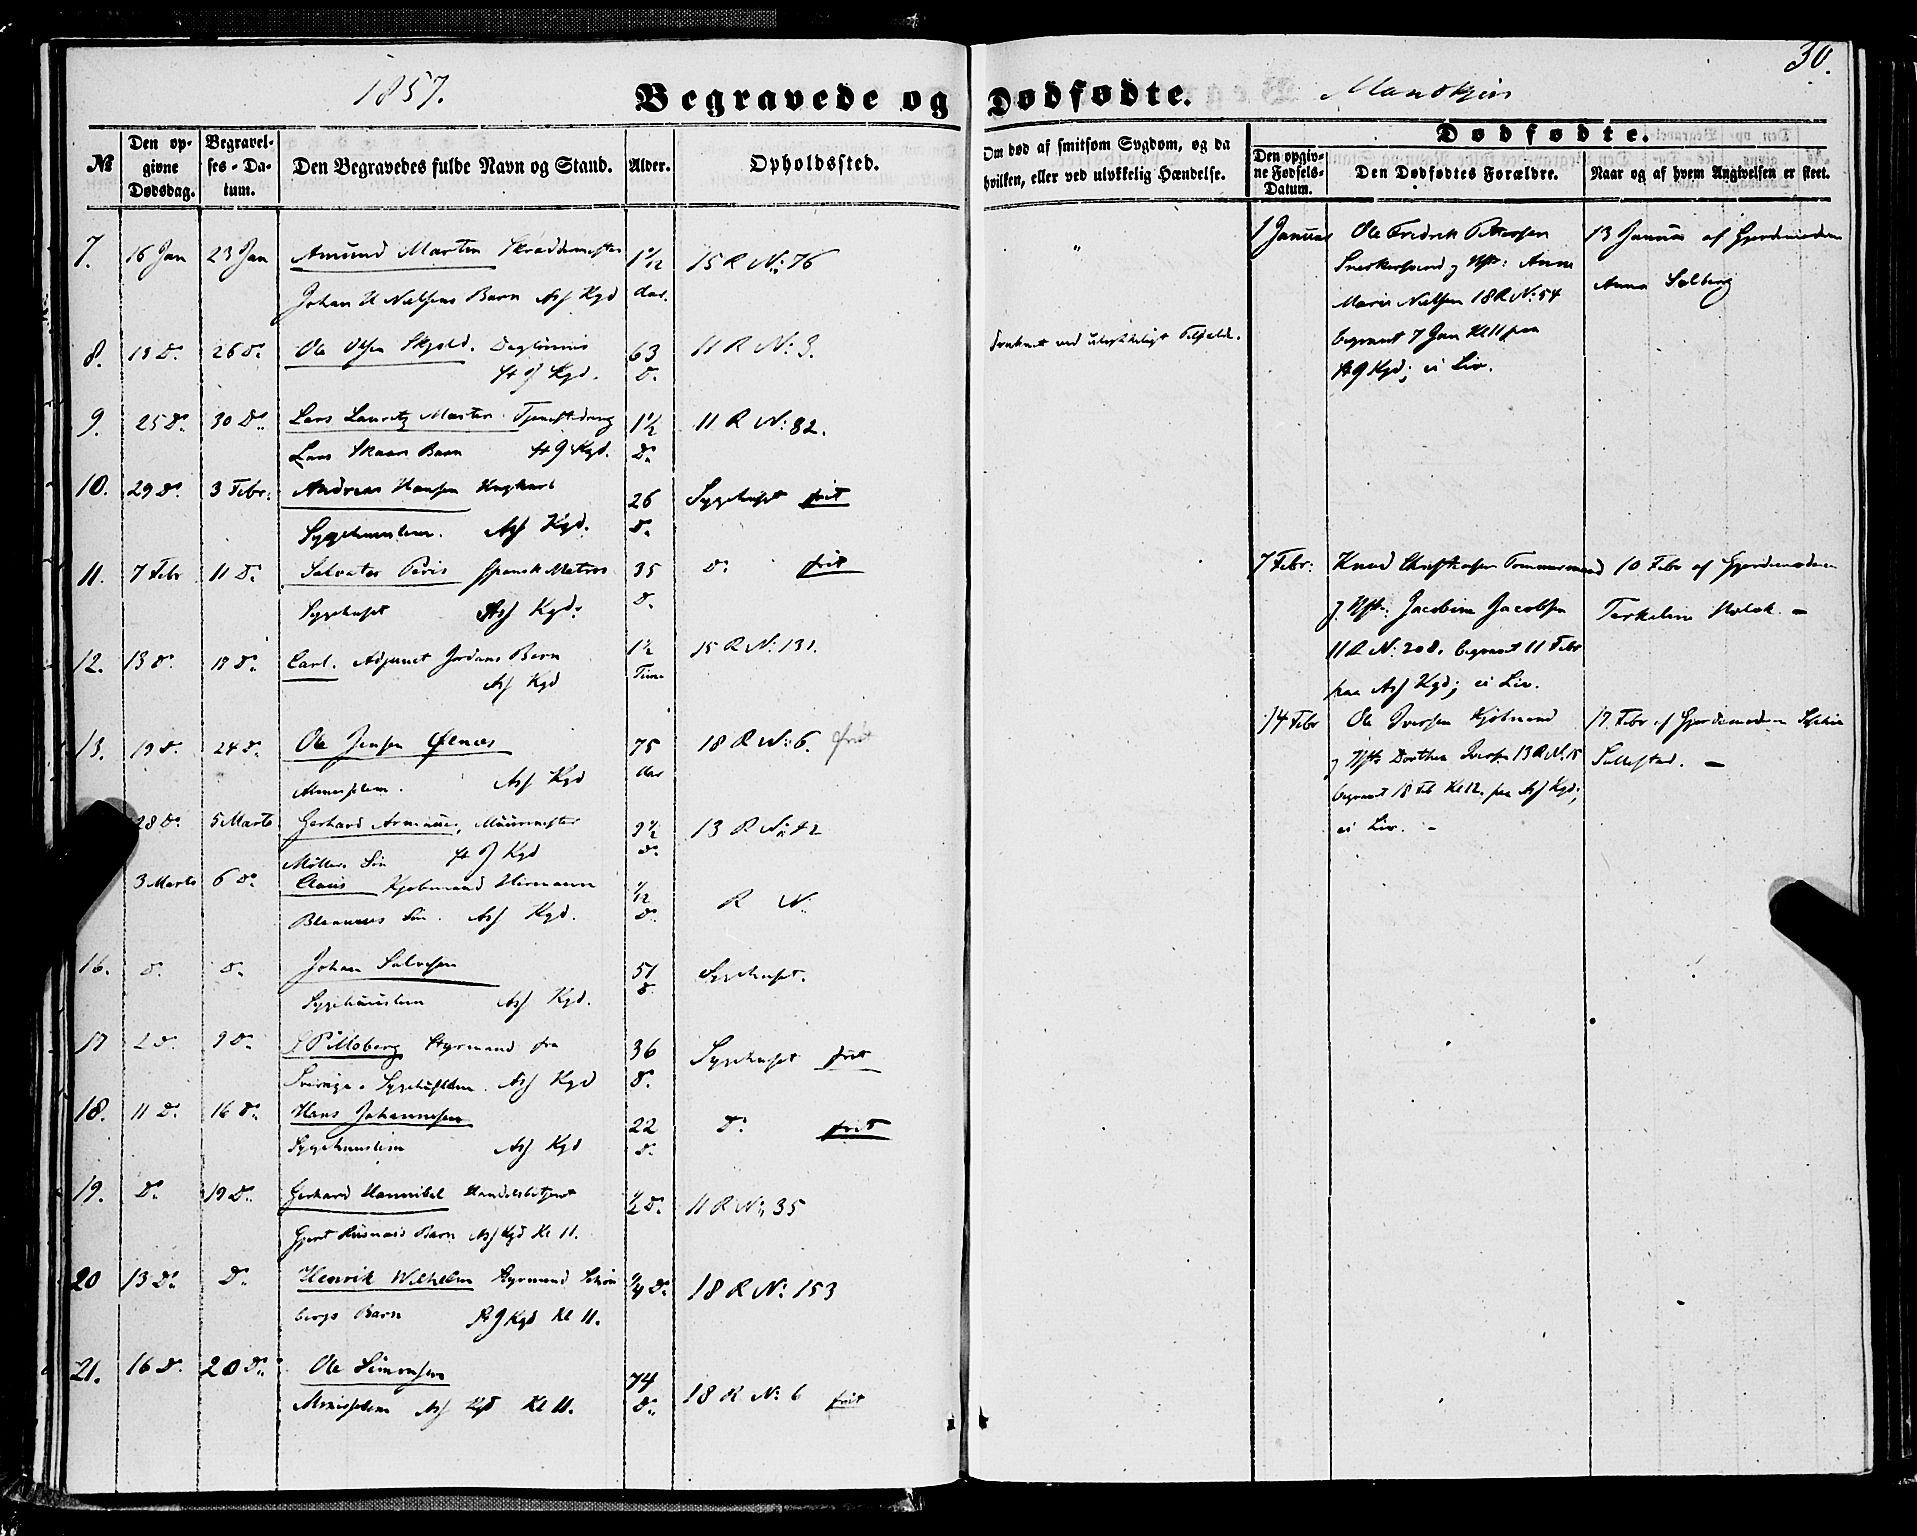 1857.
Begravede og Dødfødte.
Mandkjøn
30.
№
Den opgivne Dødsdag.
Begravelses-Datum.
Den Begravedes fulde Navn og Stand.
Alder.
Opholdssted.
Om død af smitsom Sygdom, og da hvilken, eller ved ulykkelig Hændelse.
Dødfødte.
Den opgivne Fødsels-Datum.
Den Dødfødtes Forældre.
Naar og af hvem Angivelsen er skeet.
7. 16 Jan 23 Jan Amund Martin Skræddermester 1 1/12 15 R No 76 "
Johan H Nielsens Barn Asf Kgd aar.
8. 19 D. 26 D. Ole Olsen Skjold. Dagleier 63 11 R N: 3. Druknet ved ulykkeligt Tilfælde.
St J Kgd. D.
9. 25 D. 30 D. Lars Lauritz Martin Tjenestedreng 1 1/2 11 R N: 82.
Lars Skaars Barn St J Kgd. D.
10. 29 D. 3 Febr: Andreas Hansen Ungkarl 26 Sygehuset frit
Sygehuuslem. Asf Kgd. D.
11. 7 Febr 11 D. Salvator Peris spansk Matros 35 D. frit
Sygehuset Asf Kgd. D.
12. 13 D. 18 D. Carl. Adjunct Jordans Barn 1 1/2 15 R N: 131.
Asf Kgd Time
13. 19 D. 24 D. Ole Jensen Ølnæs 75 18 R N: 6. frit
Almuelem. Asf Kgd aar
28 D. 5 Marts Gerhard Armauer, Muurmester 9 1/2 13 R No 42
Møllers Søn St J Kgd D.
3 Marts 6 D. Claus Kjøbmand Hermann 1/12 R N.
Blaauws Søn. Asf Kgd. D.
16. D. D. Johan Salvesen 51 Sygehuset.
Sygehuuslem Asf Kgd. D.
17 2 D. 9 D. Moberg Styrmand fra 36 Sygehuset frit
Sverige. Sygehuslem. Asf Kgd D.
18. 11 D. 16 D. Hans Johannesen 22 D. frit
Sygehuuslem Asf Kgd D.
19. D. 19 D. Gerhard Hannibal Handelsbetjent 1/2 D. 11 R No 35
Gjert Barn Asf Kgd Kl 11.
20 13 D. D. Henrik Wilhelm Styrmand Schøn 3/4 D. 18 R N: 153
bergs Barn St J Kgd Kl 11.
21. 16 D. 20 D. Ole Simonsen 74 18 R N: 6 frit
Asf Kgd Kl 11. D.
1 Januar Ole Fredrik Pettersen 13 Januar af Gjordemoderen
Snedkersvend og Hstr: Anne Anna Solberg
Marie Nielsen 18 R N: 54
begravet 7 Jan Kl 11 paa
St J Kgd; ei Liv.
7 Febr: Knud Christophersen Tømmermand 10 Febr af Gjordemoderen
og Hstr: Jacobine Jacobsen Terkeline Holck. –
11 R N: 208. begravet 11 Febr
paa Asf Kgd; ei Liv.
14 Febr Ole Iversen Kjøbmand 17 Febr af Gjordemoderen
og Hstr Dorthea Iversen 13 R N: 15 Sollestad. –
begravet 18 Feb Kl 12. paa Asf Kgd;
ei Liv. –